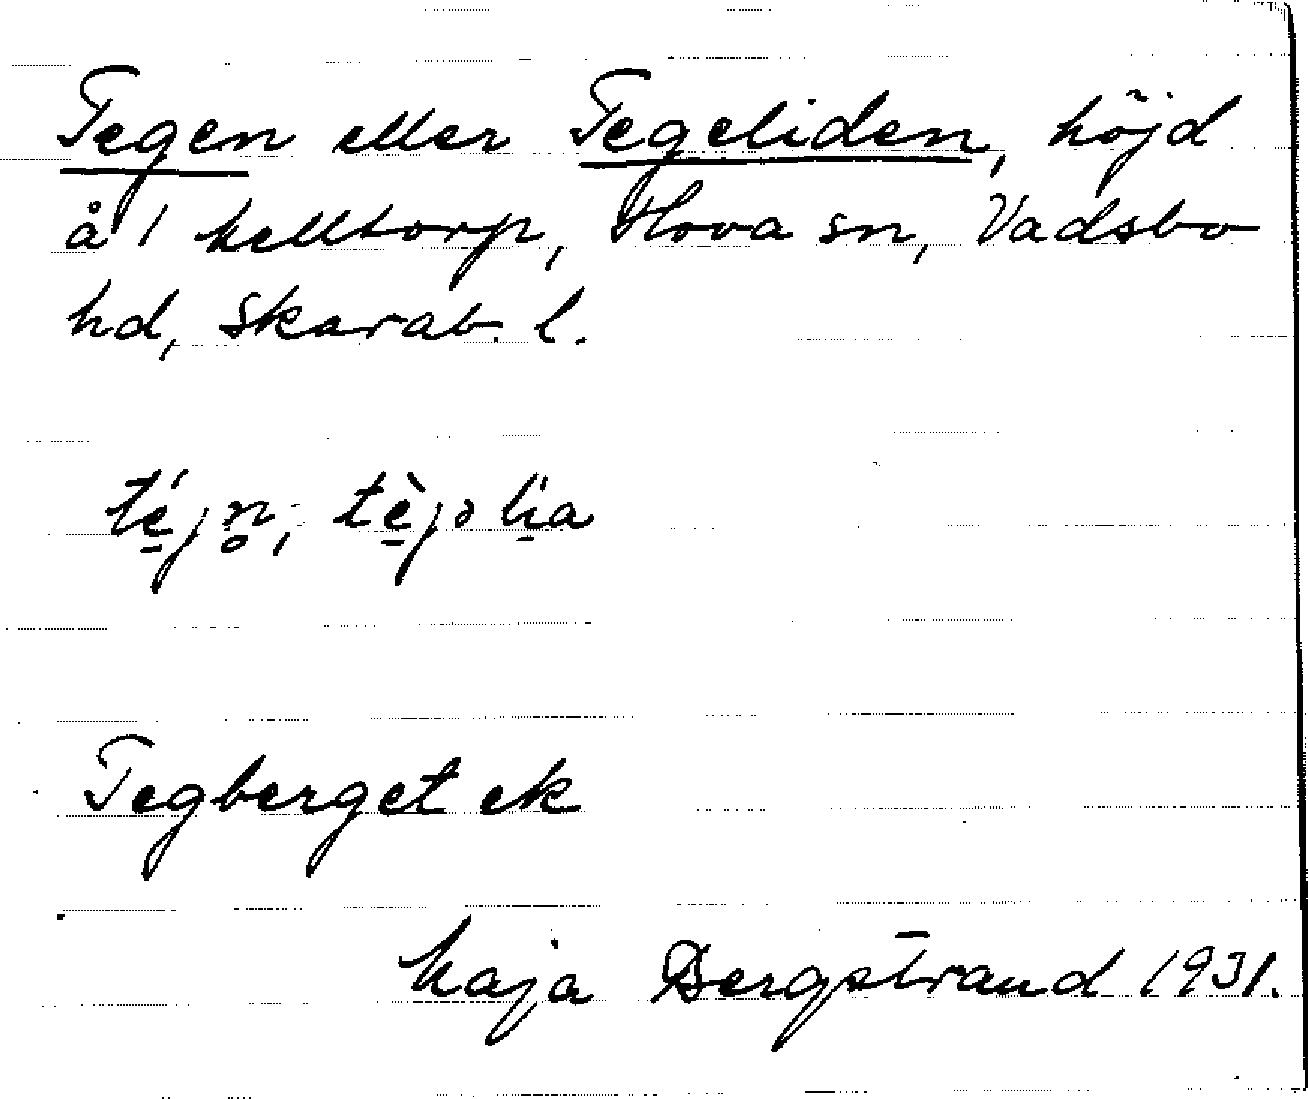 Tegen eller Tegeliden, höjd
å 1 Melltorp, Hova sn, Vadsbo
hd, Skarab. l.
Tegberget ek
Maja Bergstrand 1931.